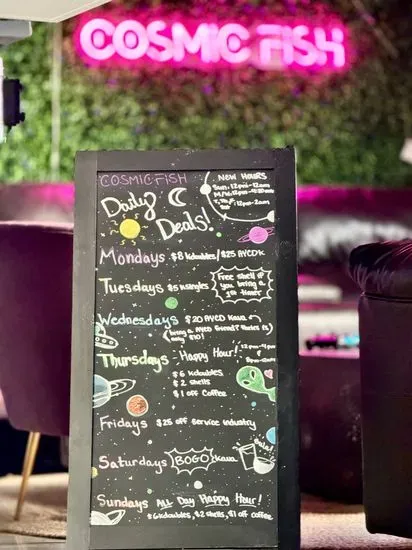 COSMIC FISH
COSMIC FISH
Daily
Deals!
NEW HOURS
Sun: 12pm-12am
12pm-2am
Mondays $8 Kdoubles/$25 AYCDK
Tuesdays $5 Ksingles
Free shell if
you bring a
1st timer
Wednesdays $20 AYCD Kava
(bring a AYCD friend? theirs is
only $10!
Thursdays - Happy Hour!
12pm-4pm
&
8pm-12am
$6 Kdoubles
$2 Shells
$1 off Coffee
Fridays $25 off Service industry
Saturdays BOGO Kava
Sundays ALL Day Happy Hour!
$6 Kdoubles, $2 Shells, $1 off Coffee